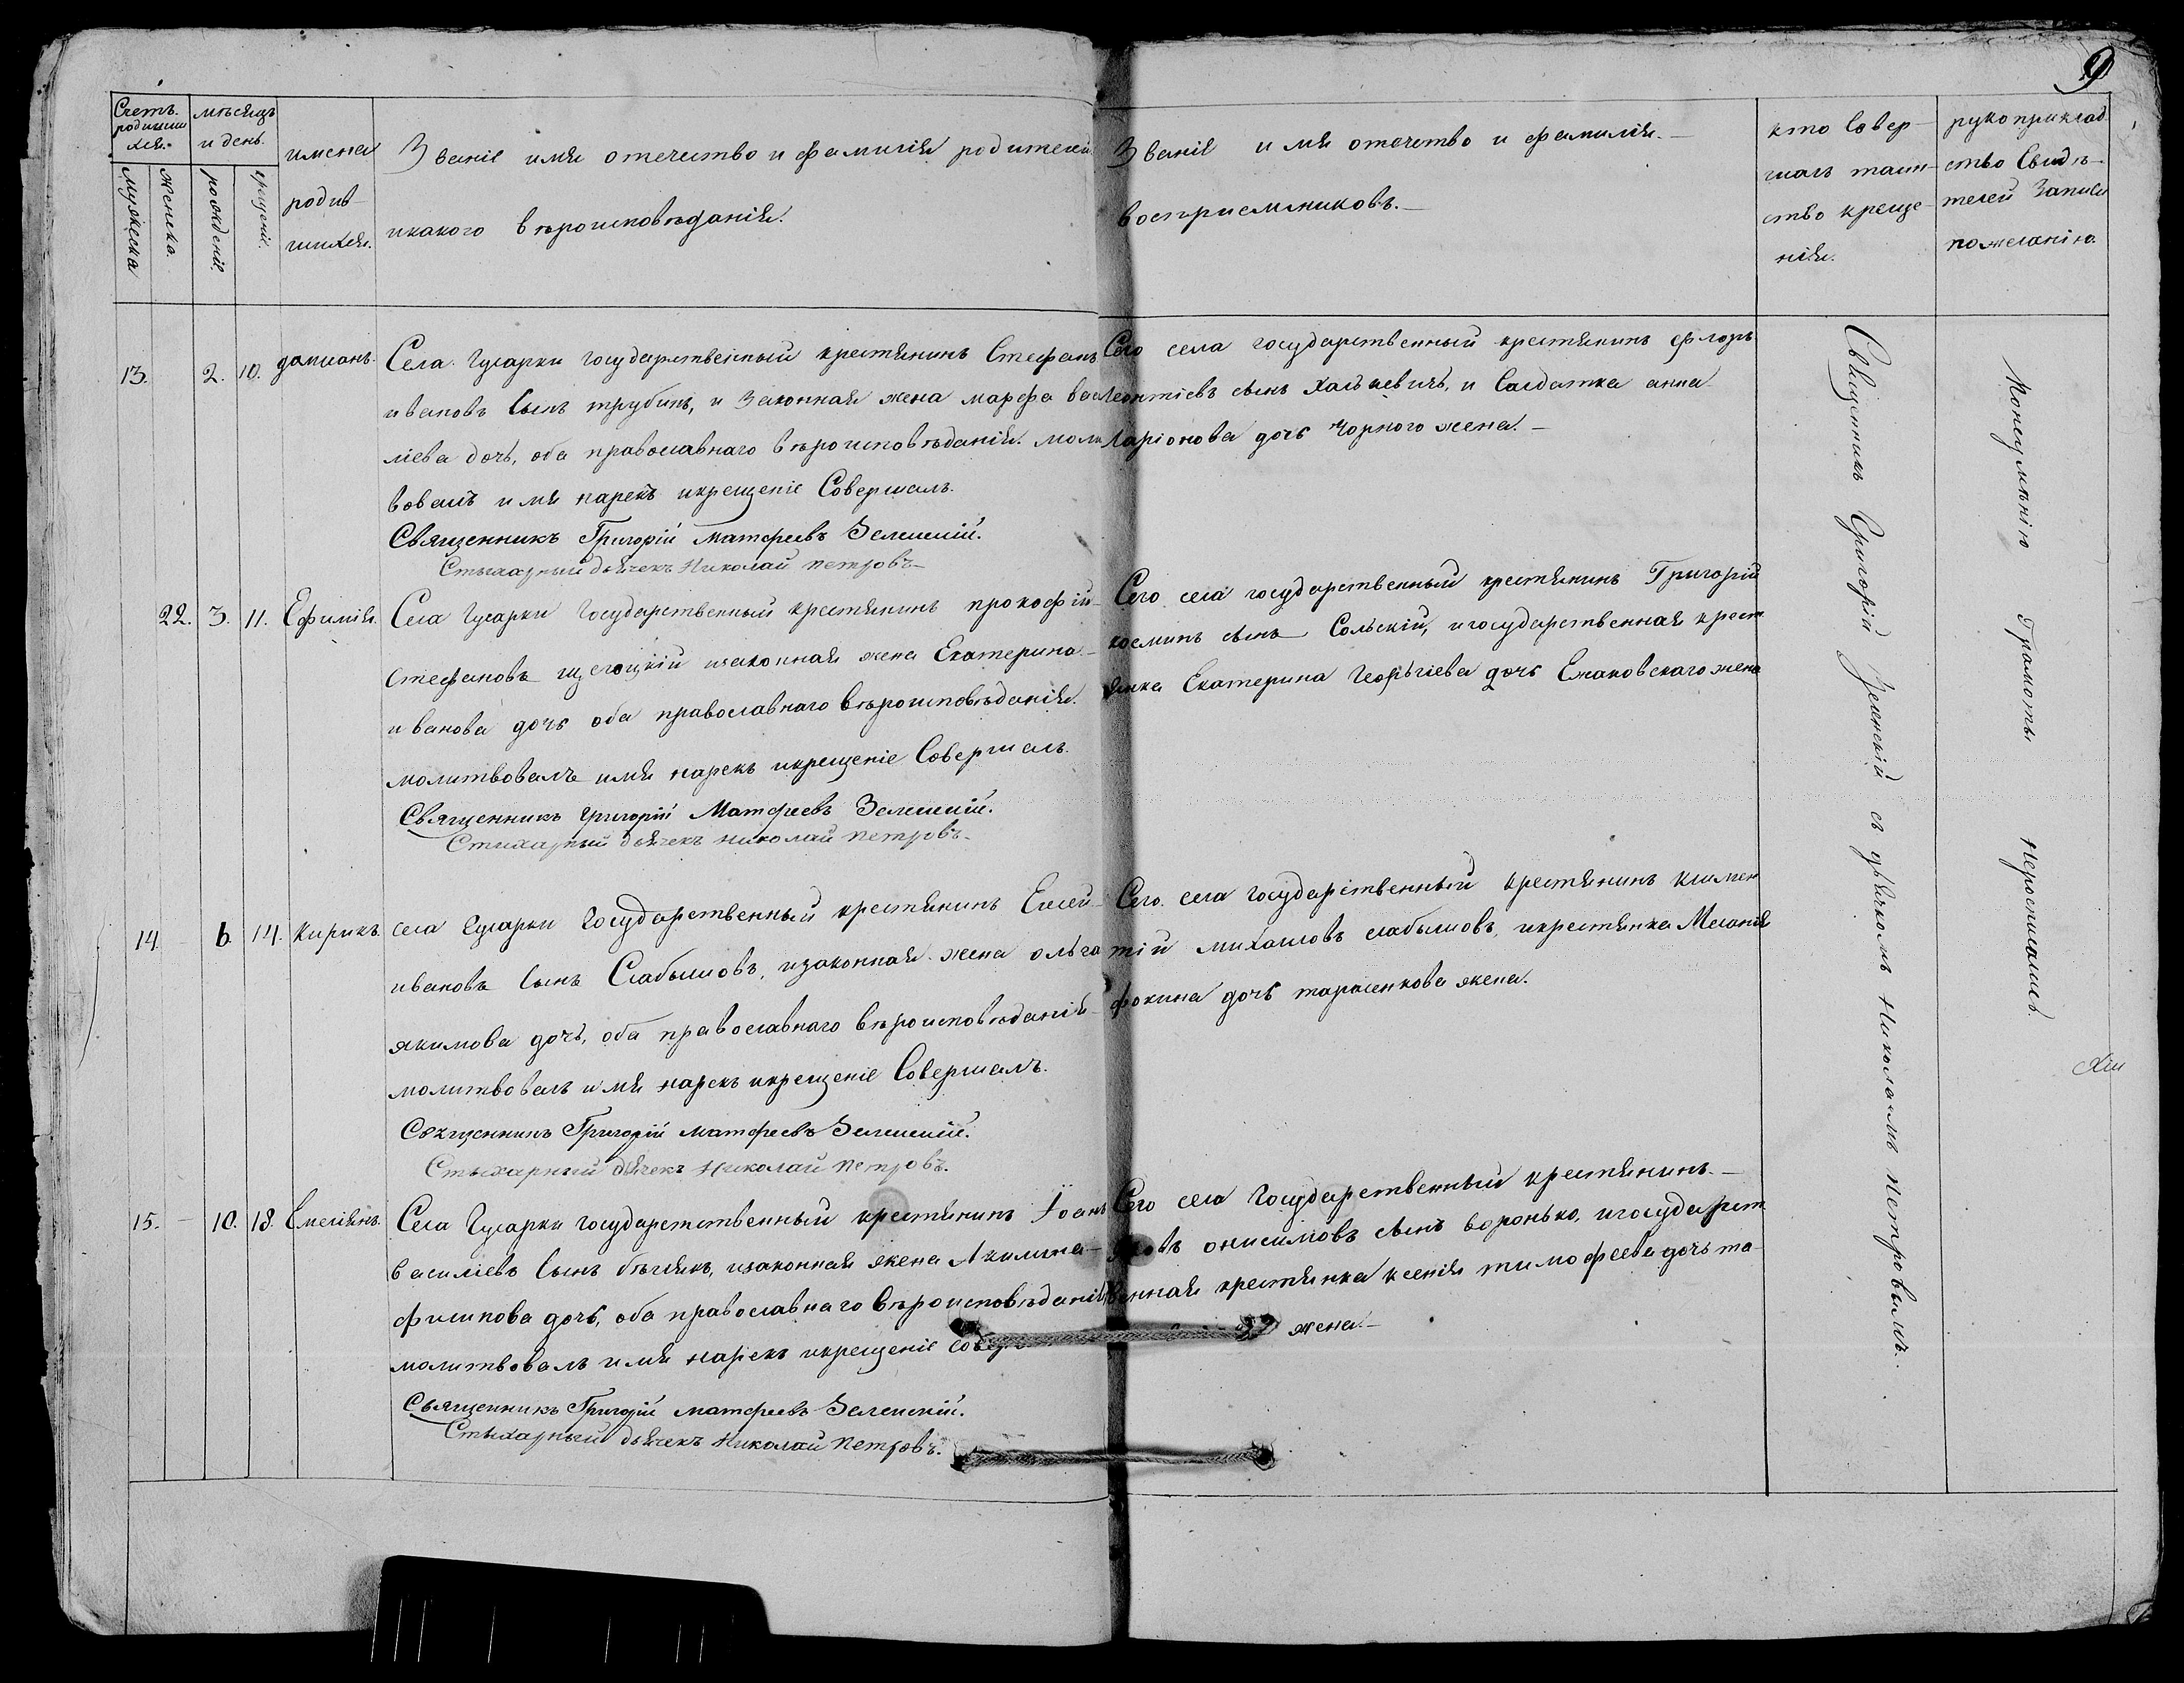 9
Счетъ родившихся.
мѣсяцъ и день.
мужеска
женска.
рожденіе.
крещеніе.
имена родив-
шихся.
Званіе имя отечество и фамилія родителей
икакого вѣроисповѣданія.
Званіе имя отечество и фамилія.
воспріемниковъ.
кто Совер-
шалъ таин-
ство креще-
нія.
рукоприклад
ство Свидѣ-
телей Записи
пожеланію.
13. 2. 10. дамианъ.
Села Гусарки государственный крестянинъ Стефанъ
ивановъ Сынъ трубинъ, и Законная жена марфа васи
лiева дочь, оба православнаго вѣроисповѣданія. молит
вовалъ имя нарекъ икрещеніе Совершалъ.
Священникъ Григорій матфеевъ Зеленскій.
Стыхарный дьячекъ Николай петровъ
Сего села государственный крестянинъ флоръ
леонтіевъ сынъ, и Салдатка анна
Ларіонова дочь Чорного жена.
22. 3. 11. Ефимія.
Села Гусарки Государственный крестянинъ прокофій
Стефановъ изаконная жена Екатерина
иванова дочь оба православнаго вѣроисповѣданія.
молитвовалъ имя нарекъ икрещеніе Совершалъ
Священникъ Григорій Матфеевъ Зеленскій.
Стихарный дьячекъ николай петровъ.
Сего села государственный крестянинъ Григорій
косминъ сынъ Сольскій, игосударственная крест
янка Екатерина Георгіева дочь Ежаковскаго жена
14 6. 14. Кирикъ.
села Гусарки Государственный крестянинъ Елисей
ивановъ Сынъ Слабышовъ, изаконная жена ольга
якимова дочь, оба православнаго вѣроисповѣданія
молитвовалъ имя нарекъ икрещеніе Совершалъ.
Священникъ Григорій матфеевъ Зеленскій.
Стыхарный дьячекъ Николай петровъ.
Сего села государственный крестянинъ климен
тій михаиловъ слабышовъ, икрестянка Меланія
фокина дочь тарасенкова жена.
15. 10. 18. Емеліянъ.
Села Гусарки государетственный крестянинъ Іоанъ
василіевъ Сынъ бѣлякъ, изаконная жена Акилина
филипова дочь, оба православнаго вѣроисповѣданія,
молитвовалъ имя нарекъ икрещеніе Совер
Священникъ Григорій матфеевъ Зеленскій.
Стыхарный дьячекъ Николай Петровъ.
Сего села Государственный крестянинъ
онисимовъ сынъ воронько, игосударст
венная крестянка ксенія тимофеева дочь та-
жена.
Священникъ Григорій Зеленскій съ дьячкомъ Николаемъ Петровымъ.
Понеумѣнію Грамоты Неросписалисъ.